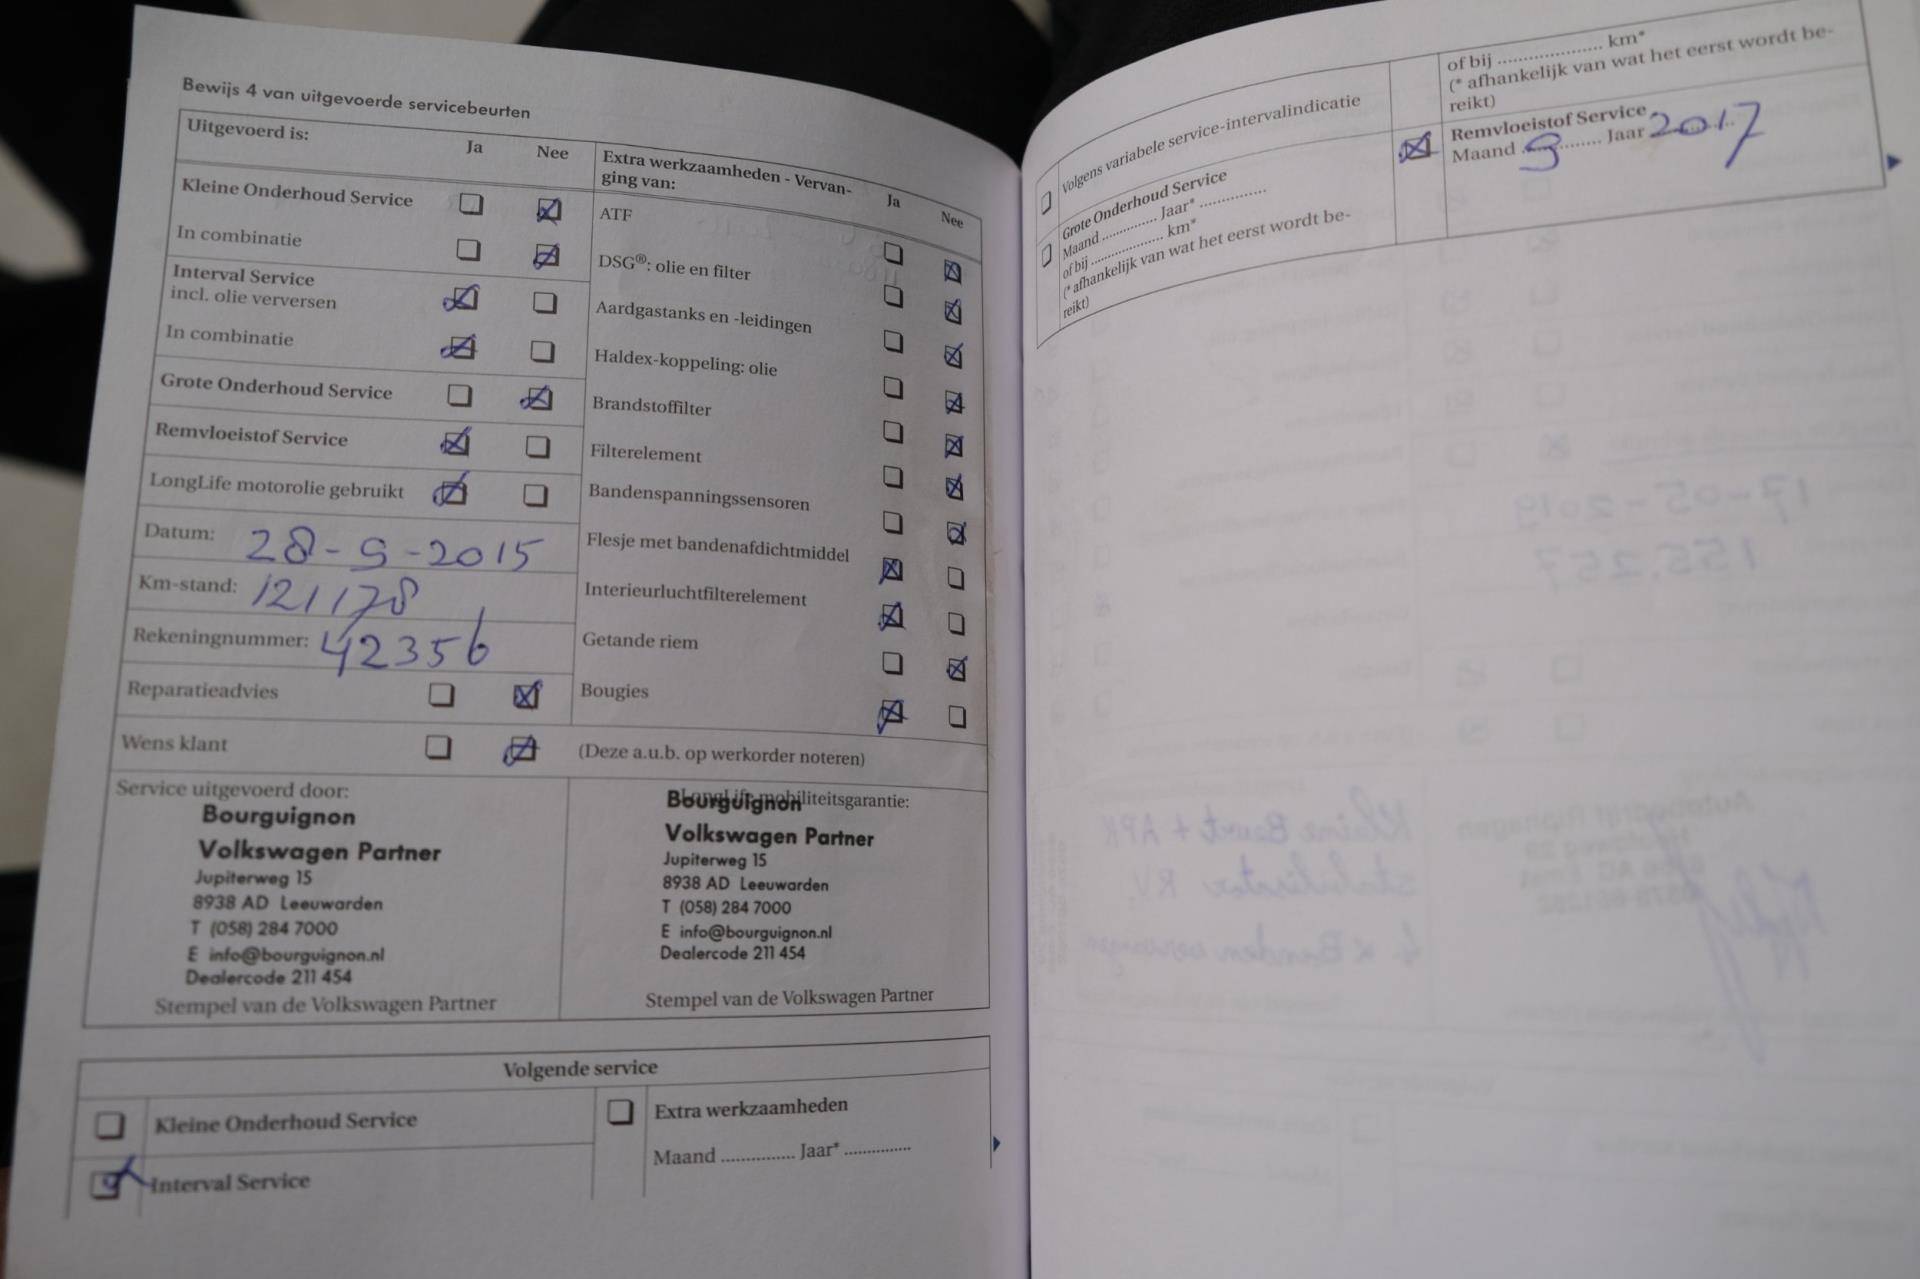 Bewijs 4 van uitgevoerde servicebeurten
Uitgevoerd is:
Ja
Nee
Kleine Onderhoud Service
In combinatie
Interval Service
incl. olie verversen
In combinatie
Grote Onderhoud Service
Remvloeistof Service
LongLife motorolie gebruikt
Datum: 28-9-2015
Km-stand: 121178
Rekeningnummer: 42356
Reparatieadvies
Wens klant
(Deze a.u.b. op werkorder noteren)
Extra werkzaamheden - Vervan-
ging van:
Ja
Nee
ATF
DSG®: olie en filter
Aardgastanks en -leidingen
Haldex-koppeling: olie
Brandstoffilter
Filterelement
Bandenspanningssensoren
Flesje met bandenafdichtmiddel
Interieurluchtfilterelement
Getande riem
Bougies
Service uitgevoerd door:
Bourguignon
Volkswagen Partner
Jupiterweg 15
8938 AD Leeuwarden
T (058) 284 7000
E info@bourguignon.nl
Dealercode 211 454
Stempel van de Volkswagen Partner
LongLife mobiliteitsgarantie:
Bourguignon
Volkswagen Partner
Jupiterweg 15
8938 AD Leeuwarden
T (058) 284 7000
E info@bourguignon.nl
Dealercode 211 454
Stempel van de Volkswagen Partner
Volgende service
Kleine Onderhoud Service
Interval Service
Extra werkzaamheden
Maand ............... Jaar* ...............
Volgens variabele service-intervalindicatie
Grote Onderhoud Service
Maand ............... Jaar* ...............
of bij .................... km*
(* afhankelijk van wat het eerst wordt be-
reikt)
of bij .................... km*
(* afhankelijk van wat het eerst wordt be-
reikt)
Remvloeistof Service
Maand 9 Jaar 2017